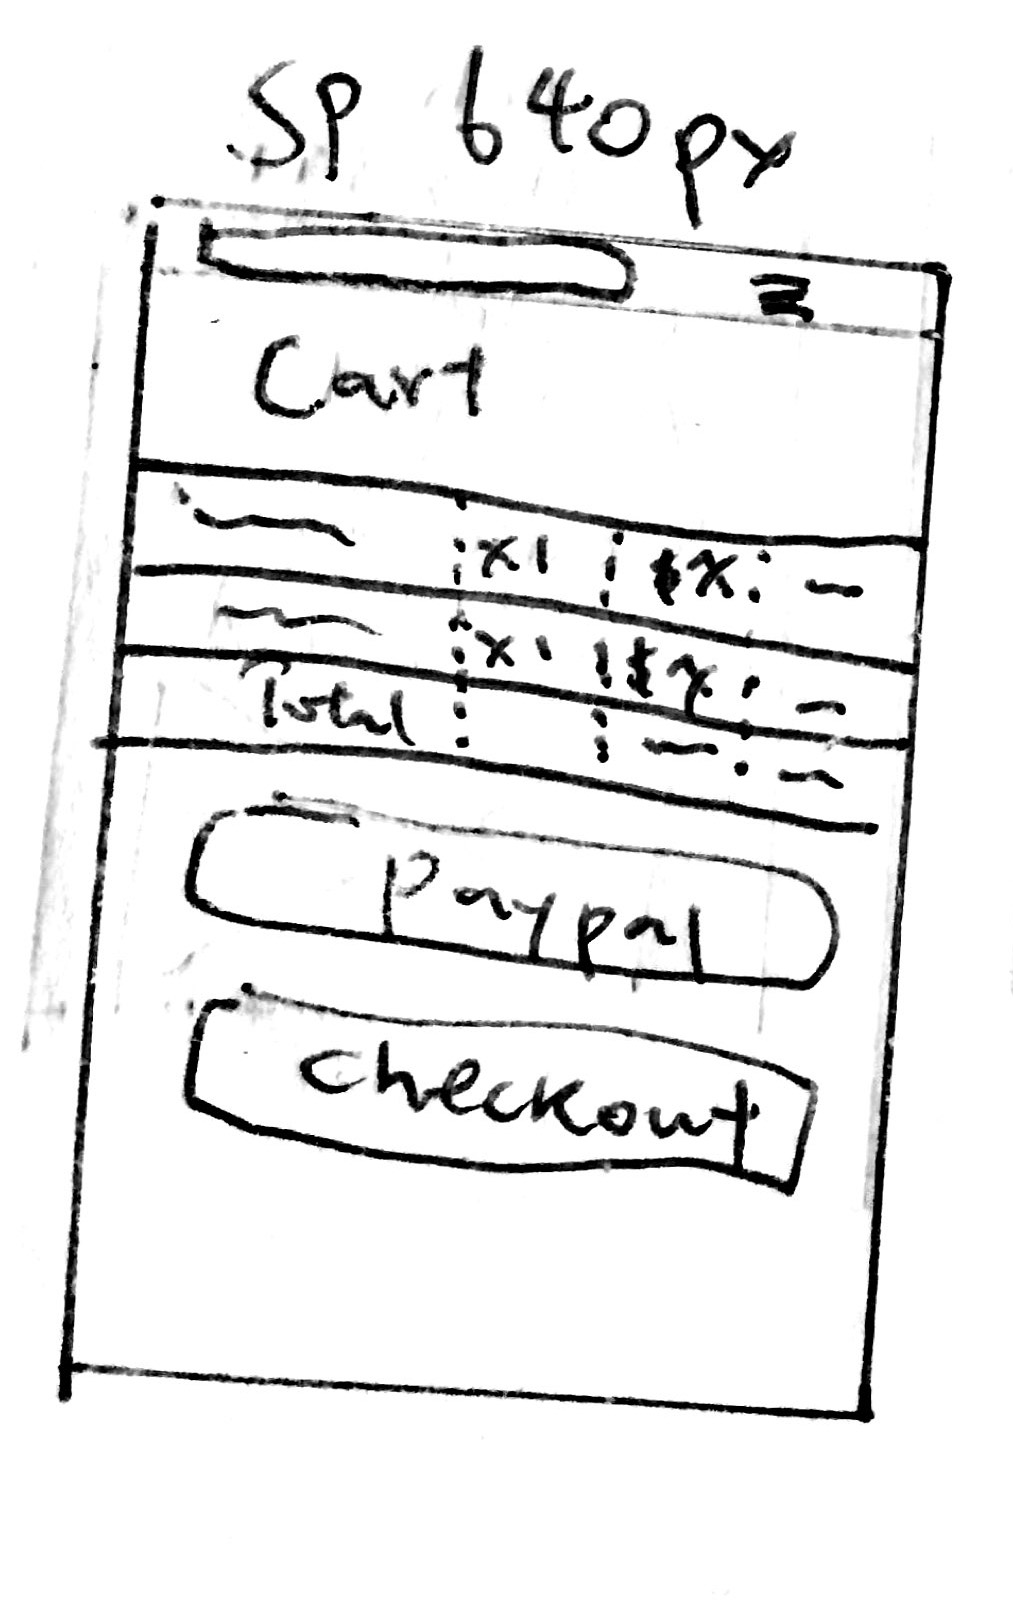 SP 640px
Cart
x1 $x
x1 $x
Total
Paypal
checkout